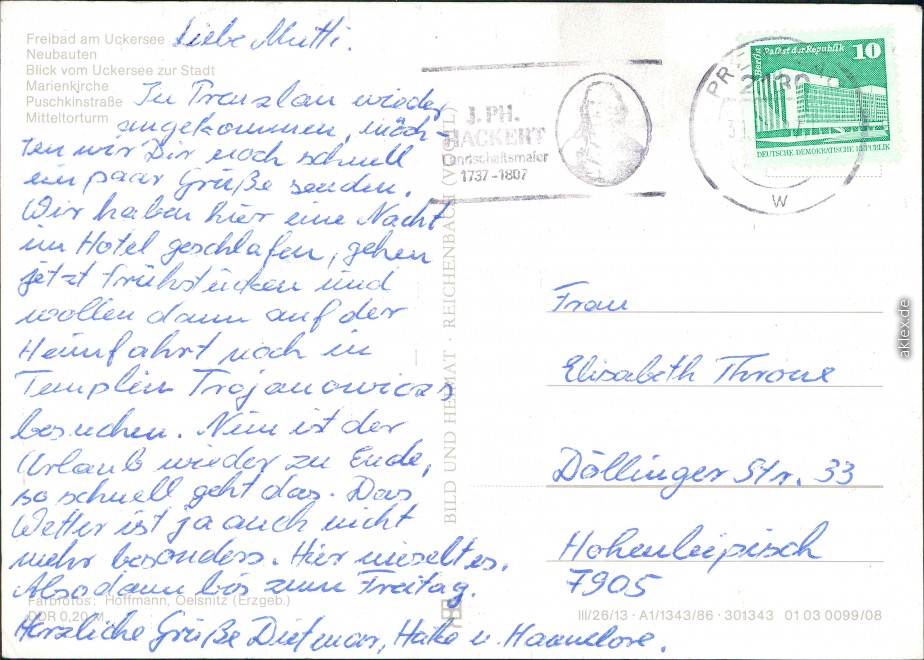 Freibad am Uckersee
Neubauten
Blick vom Uckersee zur Stadt
Marienkirche
Puschkinstraße
Mitteltorturm
Liebe Mutti.
In Prenzlau wieder
angekommen, möch-
ten wir Dir noch schnell
ein paar Grüße senden.
Wir haben hier eine Nacht
im Hotel geschlafen, gehen
jetzt frühstücken und
wollen dann auf der
Heimfahrt noch in
Templin Trojanowiczs
besuchen. Nun ist der
Urlaub wieder zu Ende,
so schnell geht das. Das
Wetter ist ja auch nicht
mehr besonders. Hier nieselt es.
Also dann bis zum Freitag.
Herzliche Grüße Dietmar, u. Hannelore.
Farbfotos: Hoffmann, Oelsnitz (Erzgeb.)
DDR 0,20 M
BILD UND HEIMAT · REICHENBACH (VOGTL)
J. PH.
HACKERT
Landschaftsmaler
1737-1807
PRE
W
Berlin
Palast der Republik
10
DEUTSCHE DEMOKRATISCHE REPUBLIK
Frau
Elisabeth Throne
Döllinger Str. 33
Hohenleipisch
7905
III/26/13 · A1/1343/86 · 301343 01 03 0099/08
aklex.de